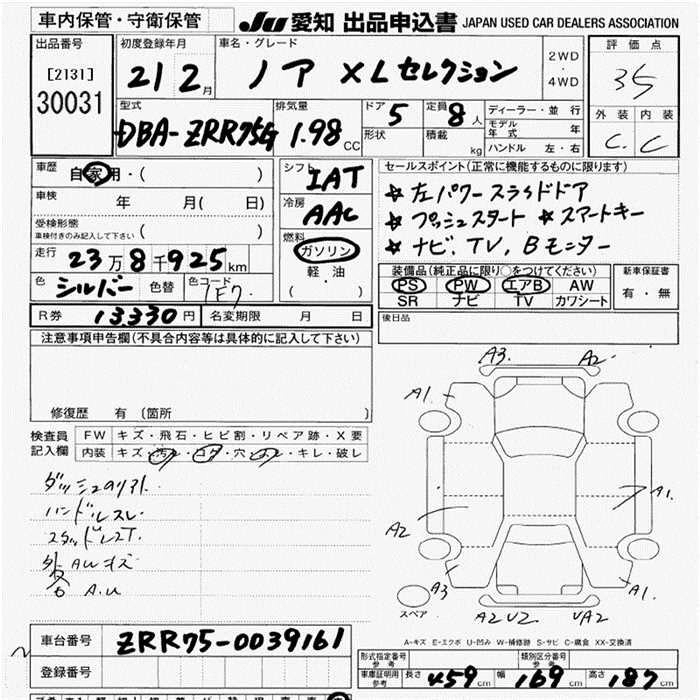 車内保管・守衛保管
JU 愛知 出品申込書 JAPAN USED CAR DEALERS ASSOCIATION
出品番号
[2131]
30031
初度登録年月
21 2 月
車名・グレード
ノア XLセレクション
2WD
・
4WD
評価点
35
外装 内装
C. C
型式
DBA-ZRR75G
排気量
1.98 CC
ドア 5
形状
定員 8 人
積載 kg
ディーラー・並行
モデル年式 年
ハンドル 左・右
車歴
自家用・( )
車検 年 月( 日)
受検形態
車検付きのみ記入して下さい ( )
走行 23万8千925km
色 シルバー 色替 色コード 1F7
シフト IAT
冷房 AAC
燃料
ガソリン
軽・油
( ・ )
セールスポイント(正常に機能するものに限ります)
★左パワースライドドア
★プッシュスタート ★スマートキー
★ナビ、TV、Bモニター
装備品(純正品に限り○をつけてください)
PS PW エアB AW
SR ナビ TV カワシート
新車保証書
有・無
R券 13330円 名変期限 月 日
後日品
注意事項申告欄(不具合内容等は具体的に記入して下さい)
修復歴 有 〔箇所 〕
検査員
記入欄
FW キズ・飛石・ヒビ割・リペア跡・X要
内装 キズ・汚レ・コゲ・穴・スレ・キレ・破レ
ハンドルスレ
A3. A2.
A1.
A1.
A2
A3 A1.
スペア
A2 U2 UA2
A-キズ E-エクボ U-凹み W-補修跡 S-サビ C-腐食 XX-交換済
車台番号 ZRR75-0039161
登録番号
形式指定番号
参考
類別区分番号
参考
車庫証明用
参考
長さ 459cm 幅 169cm 高さ 187cm